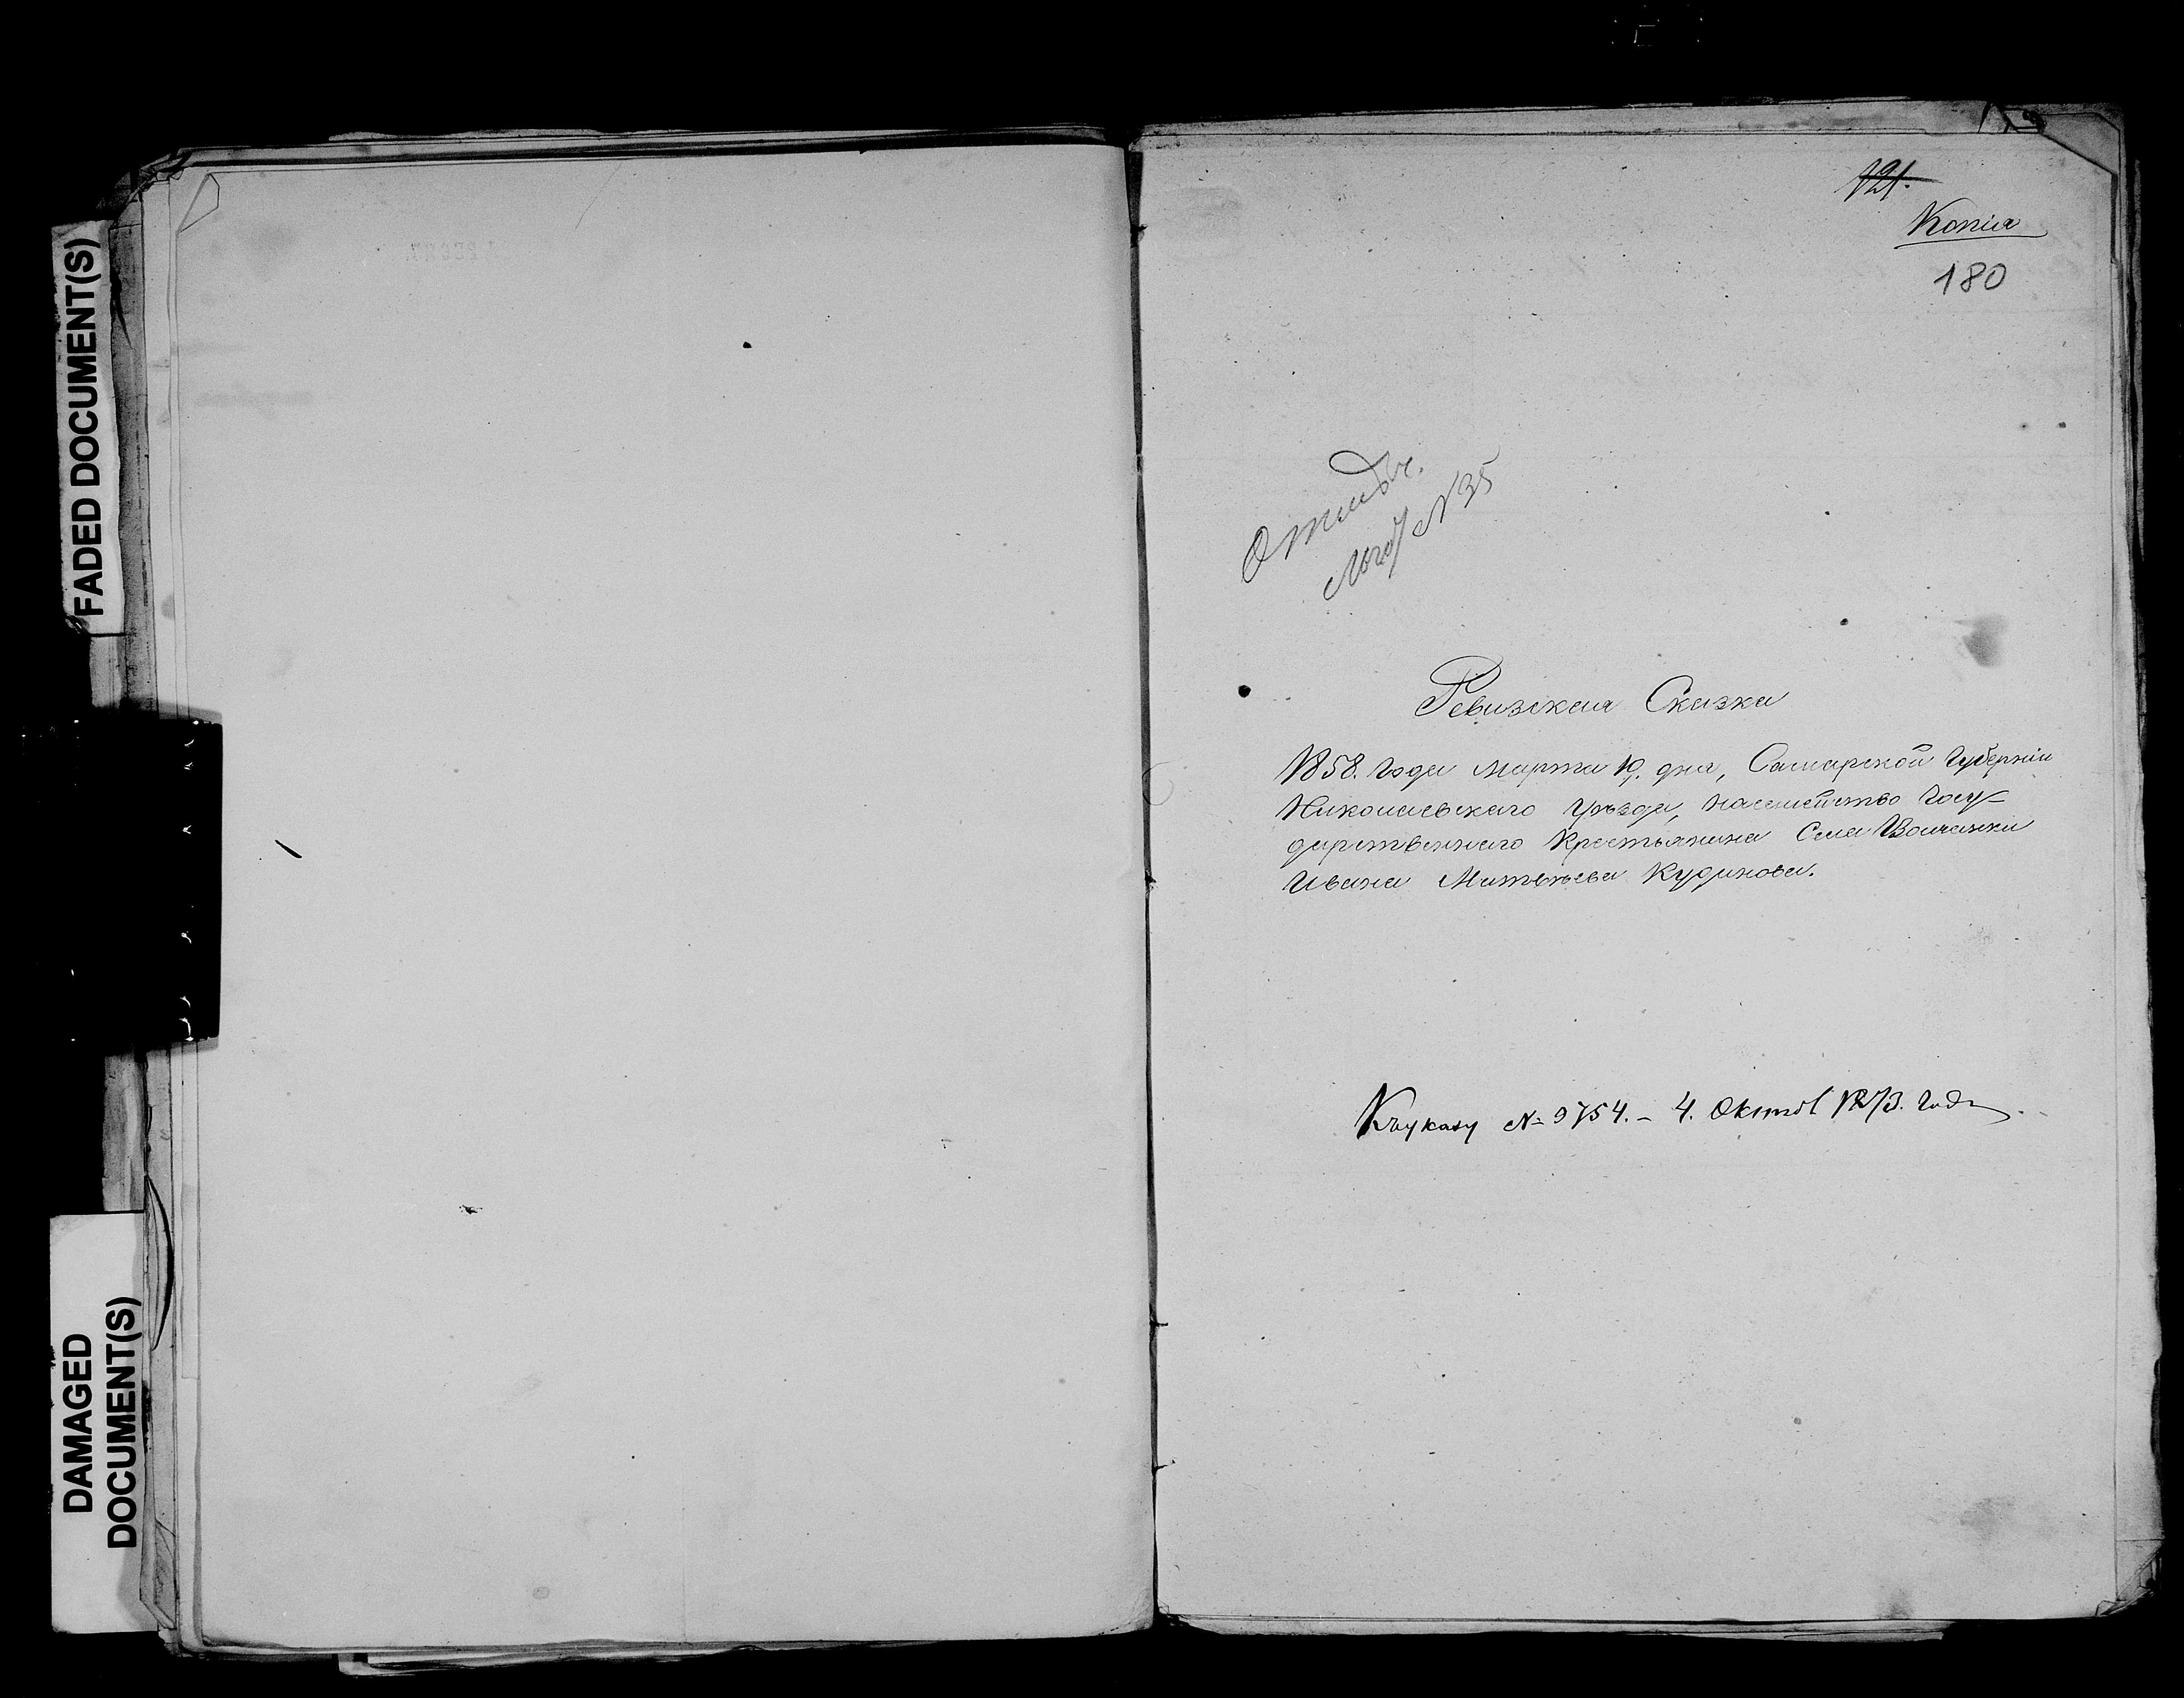 FADED DOCUMENT(S)
DAMAGED
DOCUMENT(S)
121.
Копія
180
№ 35
Ревизская Сказка
1858. Года Марта 19. дня, Самарской Губерніи
Николаевскаго Уѣзда, насемейство Госу-
дарственнаго Крестьянина Села Волчанки
Ивана Матвѣева Кудинова.
Къуказу № 9754. – 4. Октяб 1873. Года.